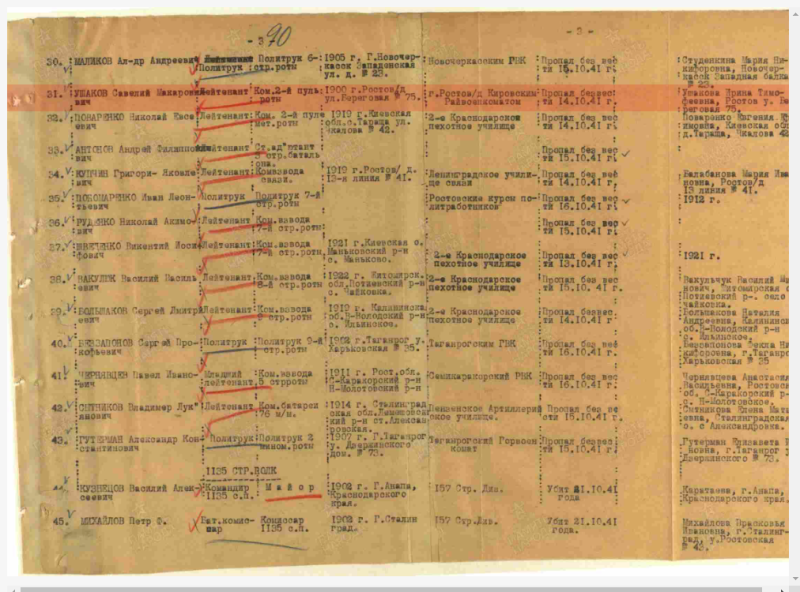 - 3 90
- 2 -
30. МАЛИКОВ Ал-др Андреевич Политрук Политрук 6-й стр.роты 1905 г. Г.Новочеркасск Западенская ул. д. № 23. Новочеркасским РВК Пропал без вести 15.10.41 г. Студенкина Мария Никифоровна, Новочеркасск Западная балка № 23
31. УШАКОВ Савелий Макарович Лейтенант Ком.2-й пуль роты 1900 г.Ростов/д ул.Береговая № 75. г.Ростов/д Кировским Райвоенкоматом Пропал безвести 14.10.41 г. Ушакова Ирина Тимофеевна, Ростов у. Береговая 75.
32. ПОВАРЕНКО Николай Евсеевич Лейтенант Ком. 2-й пуль мет.роты 1919 г.Киевская обл.с.Тараща ул. Чкалова № 42. 2-е Краснодарское пехотное училище Пропал без вести 14.10.41 г. Поваренко Евгения д.Тараща, Чкалова 42
33. АНТОНОВ Андрей Филиппович Лейтенант Ст.ад"ютант 3 стр.батальона. Пропал без вести 15.10.41 г.
34. Лейтенант Комвзвода связи. 1919 г.Ростов/ д. 13-я линия № 41. Ленинградское училище связи Пропал без вести 14.10.41 г. Балабанова Мария Ивановна, Ростов/д 13 линия № 41.
35. ПОНОМАРЕНКО Иван Леонтьевич Политрук Политрук 7-й стр.роты Ростовские курсы политработников Пропал без вести 16.10.41 г. 1912 г.
36. РУДЕНКО Николай Акимо- Лейтенант Ком.взвода 7-й стр.роты Пропал без вести 15.10.41 г.
37. Викентий Лейтенант Ком.взвода 7-й стр.роты 1921 г.Киевская о. Маньковский р-н с. Маньково. 2-е Краснодарское пехотное училище Пропал без вести 13.10.41 г. 1921 г.
38. ВАКУЛЕК Василий Лейтенант Ком.взвода 8-й стр.роты 1922 г. Житомирск. обл.Потиевский р-н с. Чайковка. 2-е Краснодарское пехотное училище Пропал без вести 15.10.41 г. Вакульчук Василий Потиевский р-. село Чайковка.
39. БОЛЬШАКОВ Сергей Дмитриевич Лейтенант Ком.взвода 9 стр.роты 1919 г. Калининская об.В-Володский р-н с. Ильинское. 2-е Краснодарское пехотное училище Пропал безвести 14.10.41 г. Большакова Наталия Андреевна, Калининск об.В-Володский р-н с. Ильинское.
40. БЕЗЗАПОНОВ Сергей Прокофьевич Политрук Политрук 9-й стр.роты 1902 г. Таганрог у. Харьковская № 36. Таганрогским ГВК Пропал без вести 16.10.41 г. Беззапонова г.Таганрог Харьковская № 36
41. ЧЕРНЯВЦЕВ Павел Иванович Младший лейтенант Ком.взвода 5 стрроты 1911 г. Рост.обл. С-Каракорский р-н Н-Молотовский р-н Семикаракорский РВК Пропал без вести 16.10.41 г. Чернявцева Анастасия Васильевна, Ростовск об. С-Каракорский р-н с. Н-Молотовское.
42. СИТНИКОВ Владимер Лук"янович Лейтенант Ком.батареи 76 м/м. 1914 г. Сталинградская обл. р-н ст.Александровская. Артиллерийское училище. Пропал без вести 15.10.41 г. Ситникова Елена Сталинградская о. с Александровка.
43. ГУТЕРМАН Александр Константинович Политрук Политрук 2 роты. 1907 г. Г.Таганрог у. Дзержинского дом. № 73. Таганрогский Горвоенкомат Пропал безвести 15.10.41 г. Гутерман Елизавета г.Таганрог у Дзержинского № 73.
1135 СТР.ПОЛК
44. КУЗНЕЦОВ Василий Алексеевич Командир 1135 с.п. Майор 1902 г. Г.Анапа, Краснодарского края. 157 Стр. Див. Убит 21.10.41 года Каратаева, г.Анапа, Краснодарского края.
45. МИХАЙЛОВ Петр Ф. Бат.комиссар Комиссар 1135 с.п. 1902 г. Г.Сталинград. 157 Стр.Див. Убит 21.10.41 года. Михайлова Прасковья Ивановна, г.Сталинград, у.Ростовская № 43.